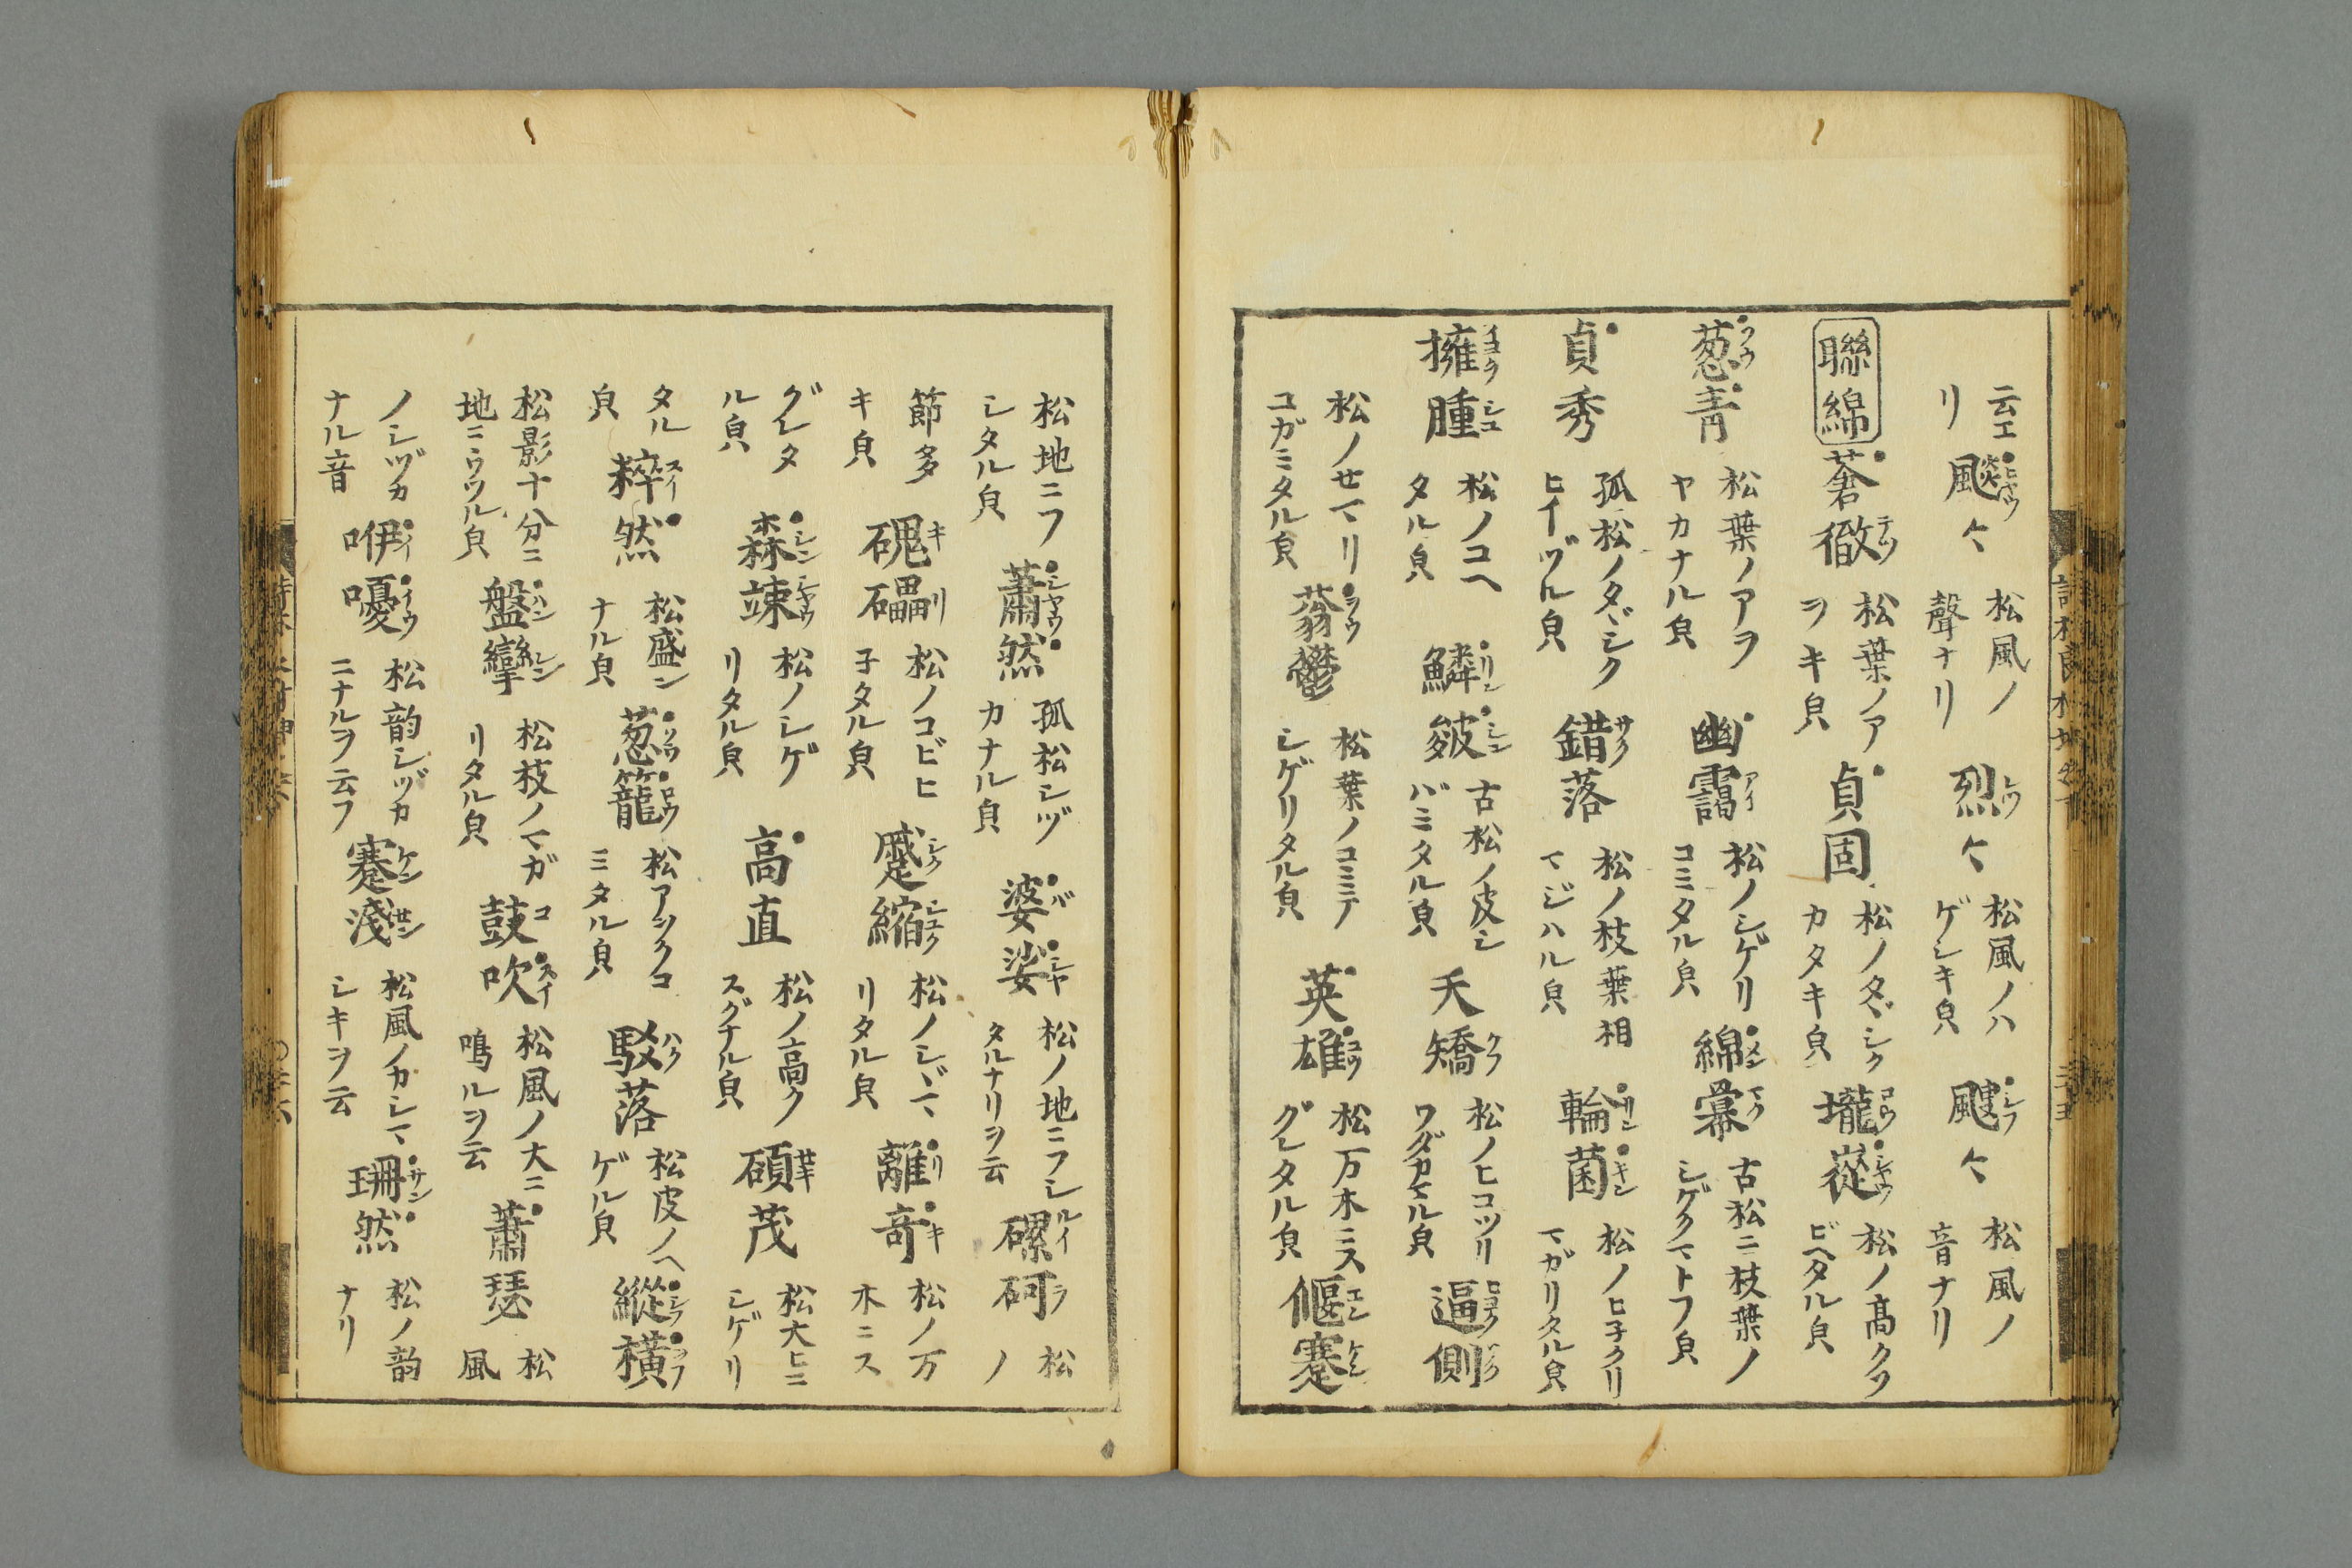 云エリ 飈〻 松風ノ聲ナリ 烈〻 松風ノハゲシキ㒵 颼〻 松風ノ音ナリ
聯綿 蒼徹 松葉ノアヲキ㒵 貞固 松ノタヾシクカタキ㒵 巃嵸 松ノ髙クソビヘタル㒵
葱青 松葉ノアヲヤカナル㒵 幽靄 松ノシゲリコミタル㒵 綿冪 古松ニ枝葉ノシゲクマトフ㒵
貞秀 孤松ノタヾシクヒイヅル㒵 錯落 松ノ枝葉相マジハル㒵 輪菌 松ノヒ子クリマガリタル㒵
擁腫 松ノコヘタル㒵 鱗皴 古松ノ皮シバミタル㒵 夭矯 松ノヒコツリワダカマル㒵 逼側
松ノせマリコガミタル㒵 蓊鬱 松葉ノコミテシゲリタル㒵 英雄 松万木ニスグレタル㒵 偃蹇
松地ニフシタル㒵 蕭然 孤松シヅカナル㒵 婆娑 松ノ地ニフシタルナリヲ云 磥砢 松ノ
節多キ㒵 磈礧 松ノコビヒ子タル㒵 蹙縮 松ノシヾマリタル㒵 離奇 松ノ万木ニス
グレタル㒵 森竦 松ノシゲリタル㒵 高直 松ノ高クスグナル㒵 碩茂 松大ヒニシゲリ
タル㒵 粹然 松盛ンナル㒵 葱籠 松アツクコミタル㒵 駁落 松皮ノヘゲル㒵 縱横
松影十分ニ地ニウツル㒵 盤攣 松枝ノマガリタル㒵 鼓吹 松風ノ大ニ鳴ルヲ云 蕭瑟 松風
ノシヅカナル音 咿嚘 松韵シヅカニナルヲ云フ 蹇淺 松風ノカシマシキヲ云 珊然 松ノ韵ナリ